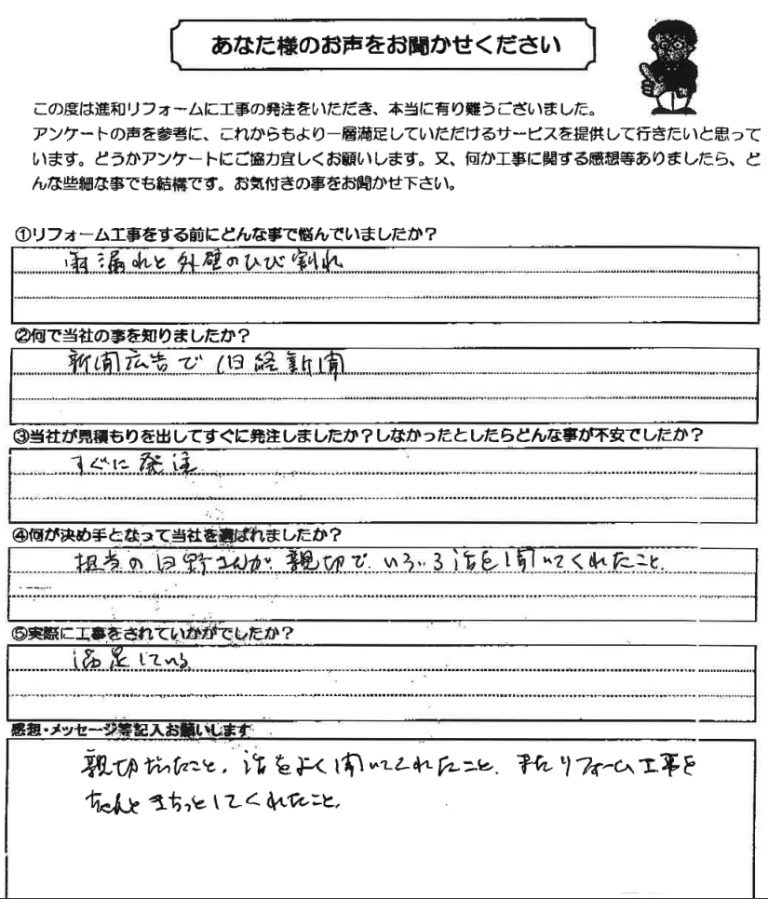 あなた様のお声をお聞かせください
この度は進和リフォームに工事の発注をいただき、本当に有り難うございました。
アンケートの声を参考に、これからもより一層満足していただけるサービスを提供して行きたいと思って
います。どうかアンケートにご協力宜しくお願いします。又、何か工事に関する感想等ありましたら、ど
んな些細な事でも結構です。お気付きの事をお聞かせ下さい。
①リフォーム工事をする前にどんな事で悩んでいましたか？
雨漏れと外壁のひび割れ
②何で当社の事を知りましたか？
新聞広告で 日経新聞
③当社が見積もりを出してすぐに発注しましたか？しなかったとしたらどんな事が不安でしたか？
すぐに発注
④何が決め手となって当社を選ばれましたか？
担当の日野さんが親切で、いろいろ話を聞いてくれたこと。
⑤実際に工事をされていかがでしたか？
満足している
感想・メッセージ等記入お願いします
親切だったこと、話をよく聞いてくれたこと、またリフォーム工事を
ちゃんときちっとしてくれたこと。